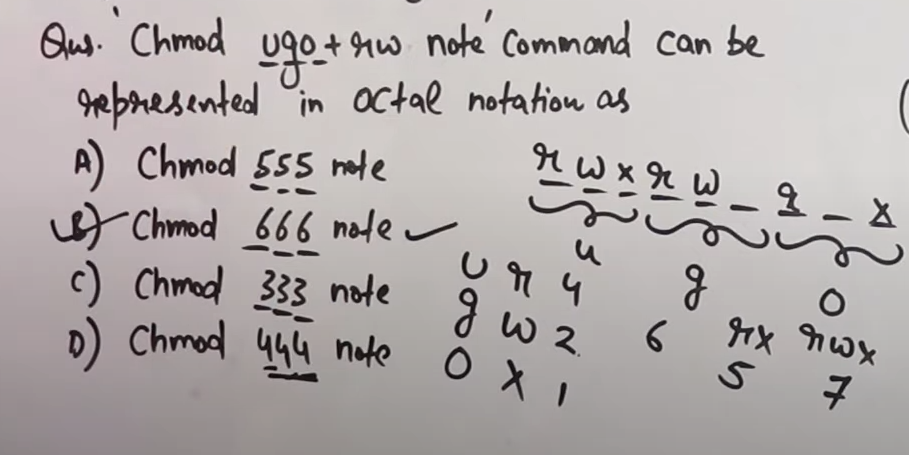 Qus. 'Chmod ugo+rw note' Command can be
represented in octal notation as
A) Chmod 555 note
B) Chmod 666 note ✓
C) Chmod 333 note
D) Chmod 444 note
r w x r w _ r _ x
u g o
U r 4
g w 2 6 rx rwx
O x 1 5 7